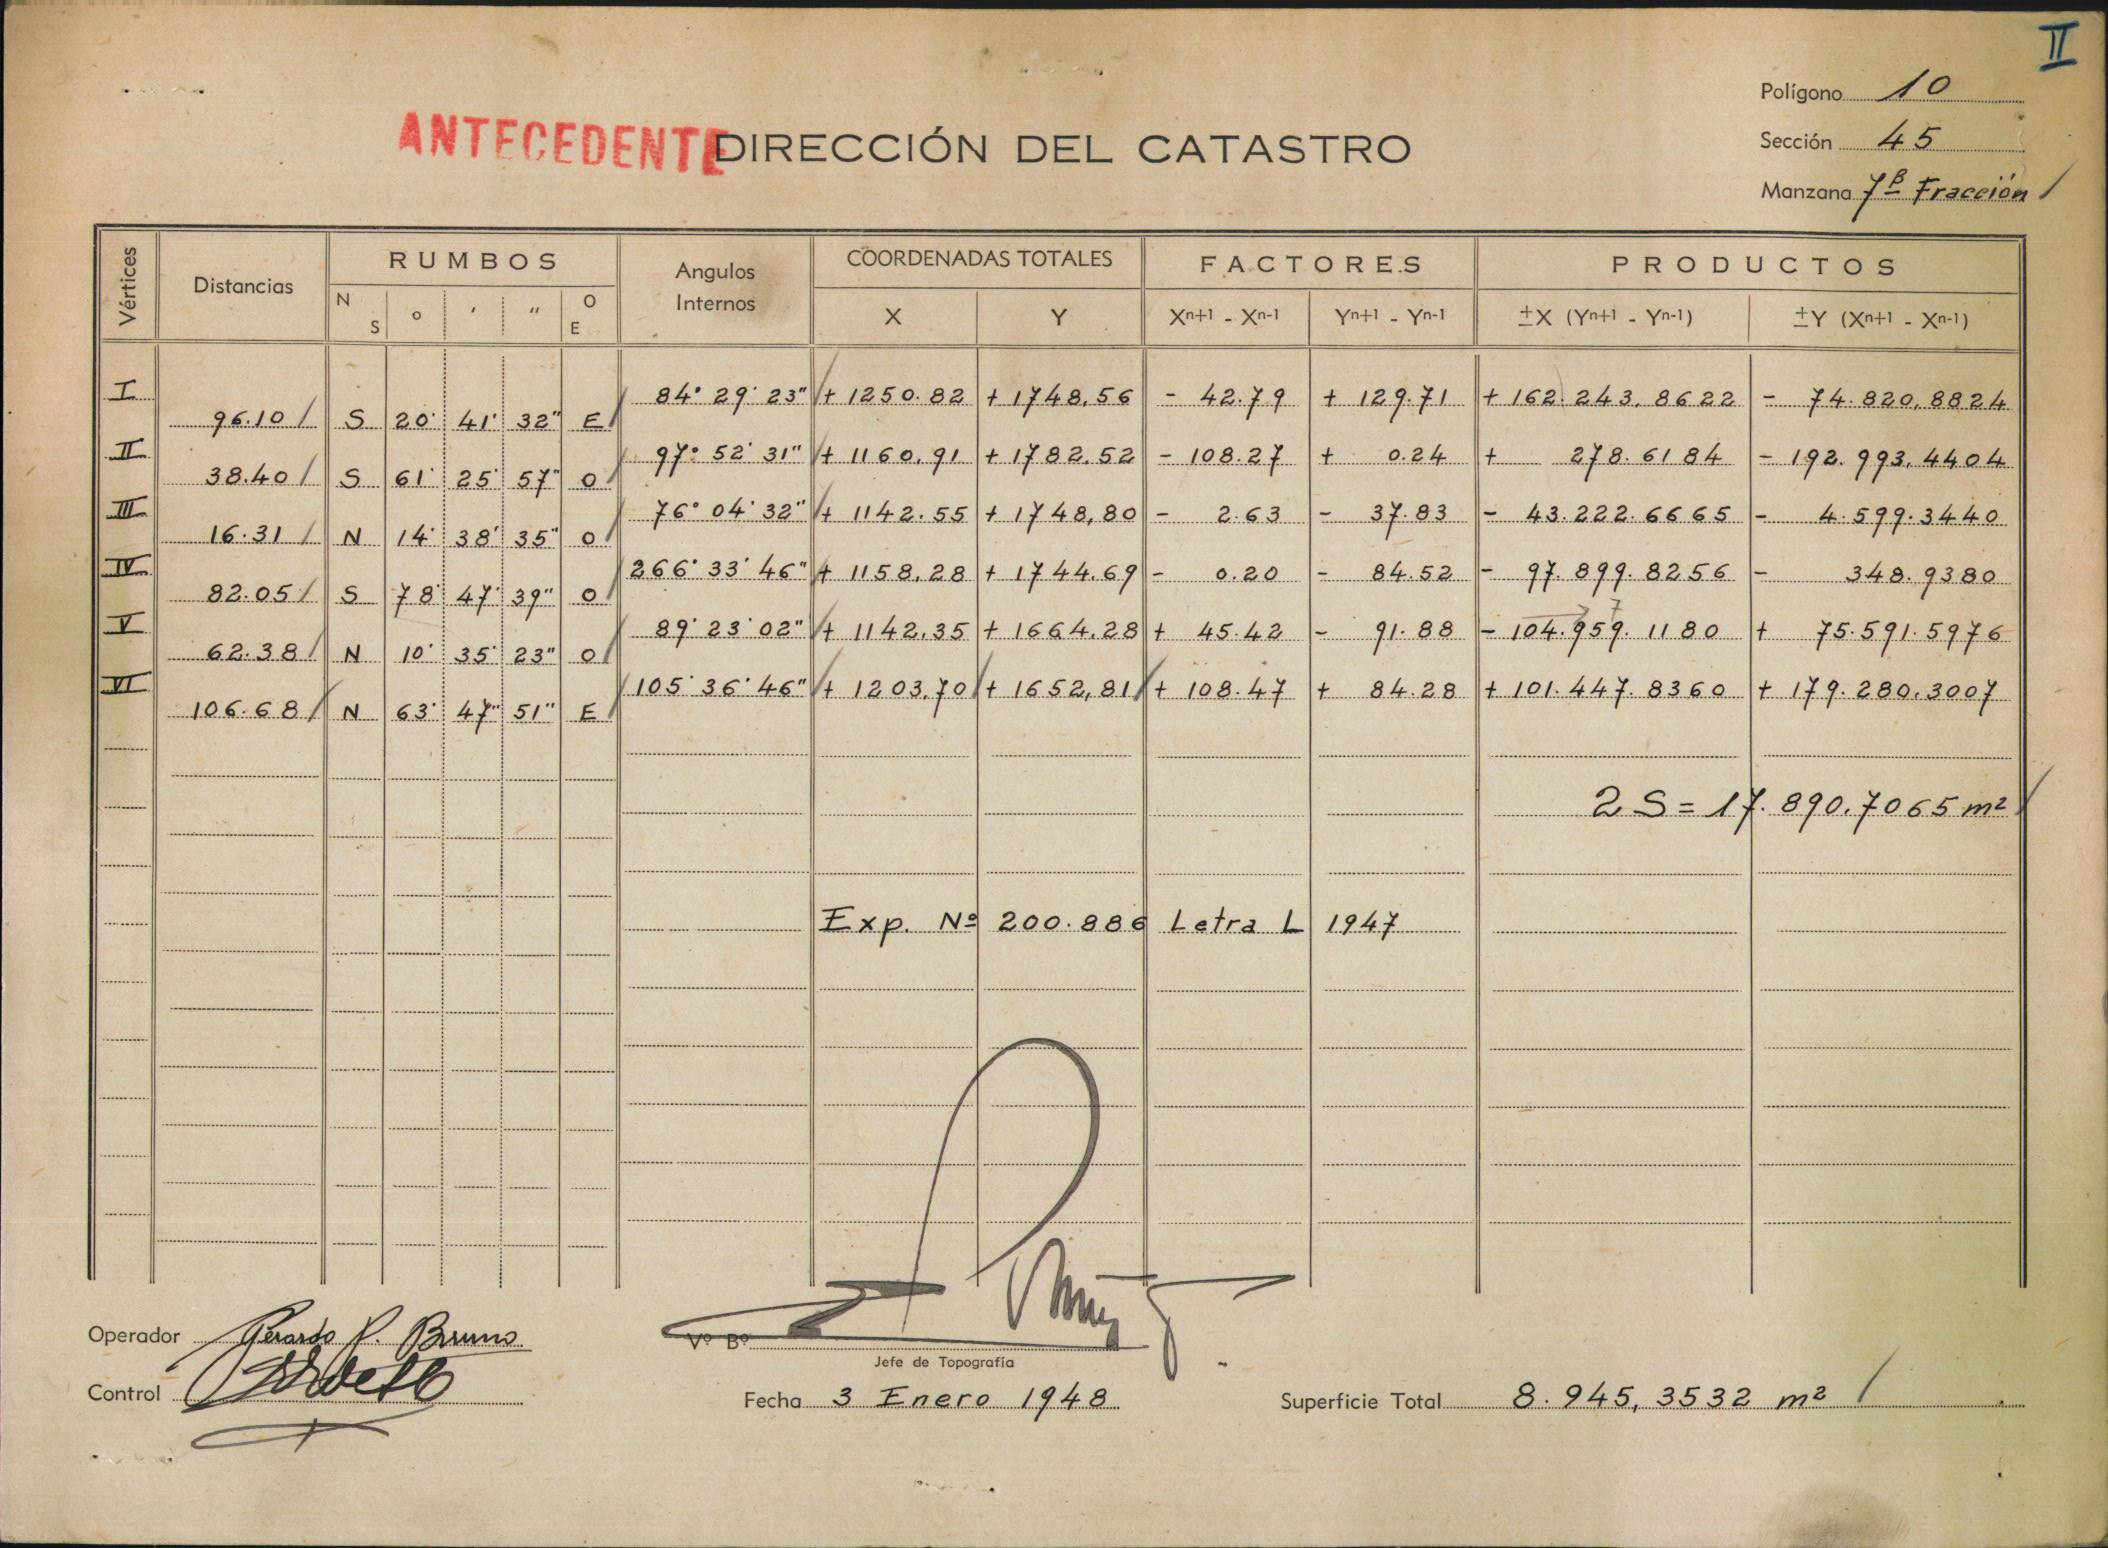 II
Polígono 10
Sección 45
Manzana 7ª Fracción
ANTECEDENTE DIRECCIÓN DEL CATASTRO
Vértices Distancias RUMBOS Angulos Internos COORDENADAS TOTALES FACTORES PRODUCTOS
N S ° ′ ″ O E X Y Xn+1 - Xn-1 Yn+1 - Yn-1 ±X (Yn+1 - Yn-1) ±Y (Xn+1 - Xn-1)
I 84° 29' 23" + 1250.82 + 1748,56 - 42.79 + 129.71 + 162.243.8622 - 74.820,8824
96.10 S 20° 41' 32" E
II 97° 52' 31" + 1160.91 + 1782.52 - 108.27 + 0.24 + 278.6184 - 192.993.4404
38.40 S 61° 25' 57" O
III 76° 04' 32" + 1142.55 + 1748,80 - 2.63 - 37.83 - 43.222.6665 - 4.599.3440
16.31 N 14° 38' 35" O
IV 266° 33' 46" + 1158.28 + 1744.69 - 0.20 - 84.52 - 97.899.8256 - 348.9380
82.05 S 78° 47' 39" O
7
V 89° 23' 02" + 1142.35 + 1664.28 + 45.42 - 91.88 - 104.959.1180 + 75.591.5976
62.38 N 10° 35' 23" O
VI 105° 36' 46" + 1203.70 + 1652,81 + 108.47 + 84.28 + 101.447.8360 + 179.280.3007
106.68 N 63° 47" 51" E
2 S = 17.890.7065 m²
Exp. Nº 200.886 Letra L 1947
Operador Gerardo P. Bruno
Vº Bº
Jefe de Topografía
Control
Fecha 3 Enero 1948
Superficie Total 8.945,3532 m²